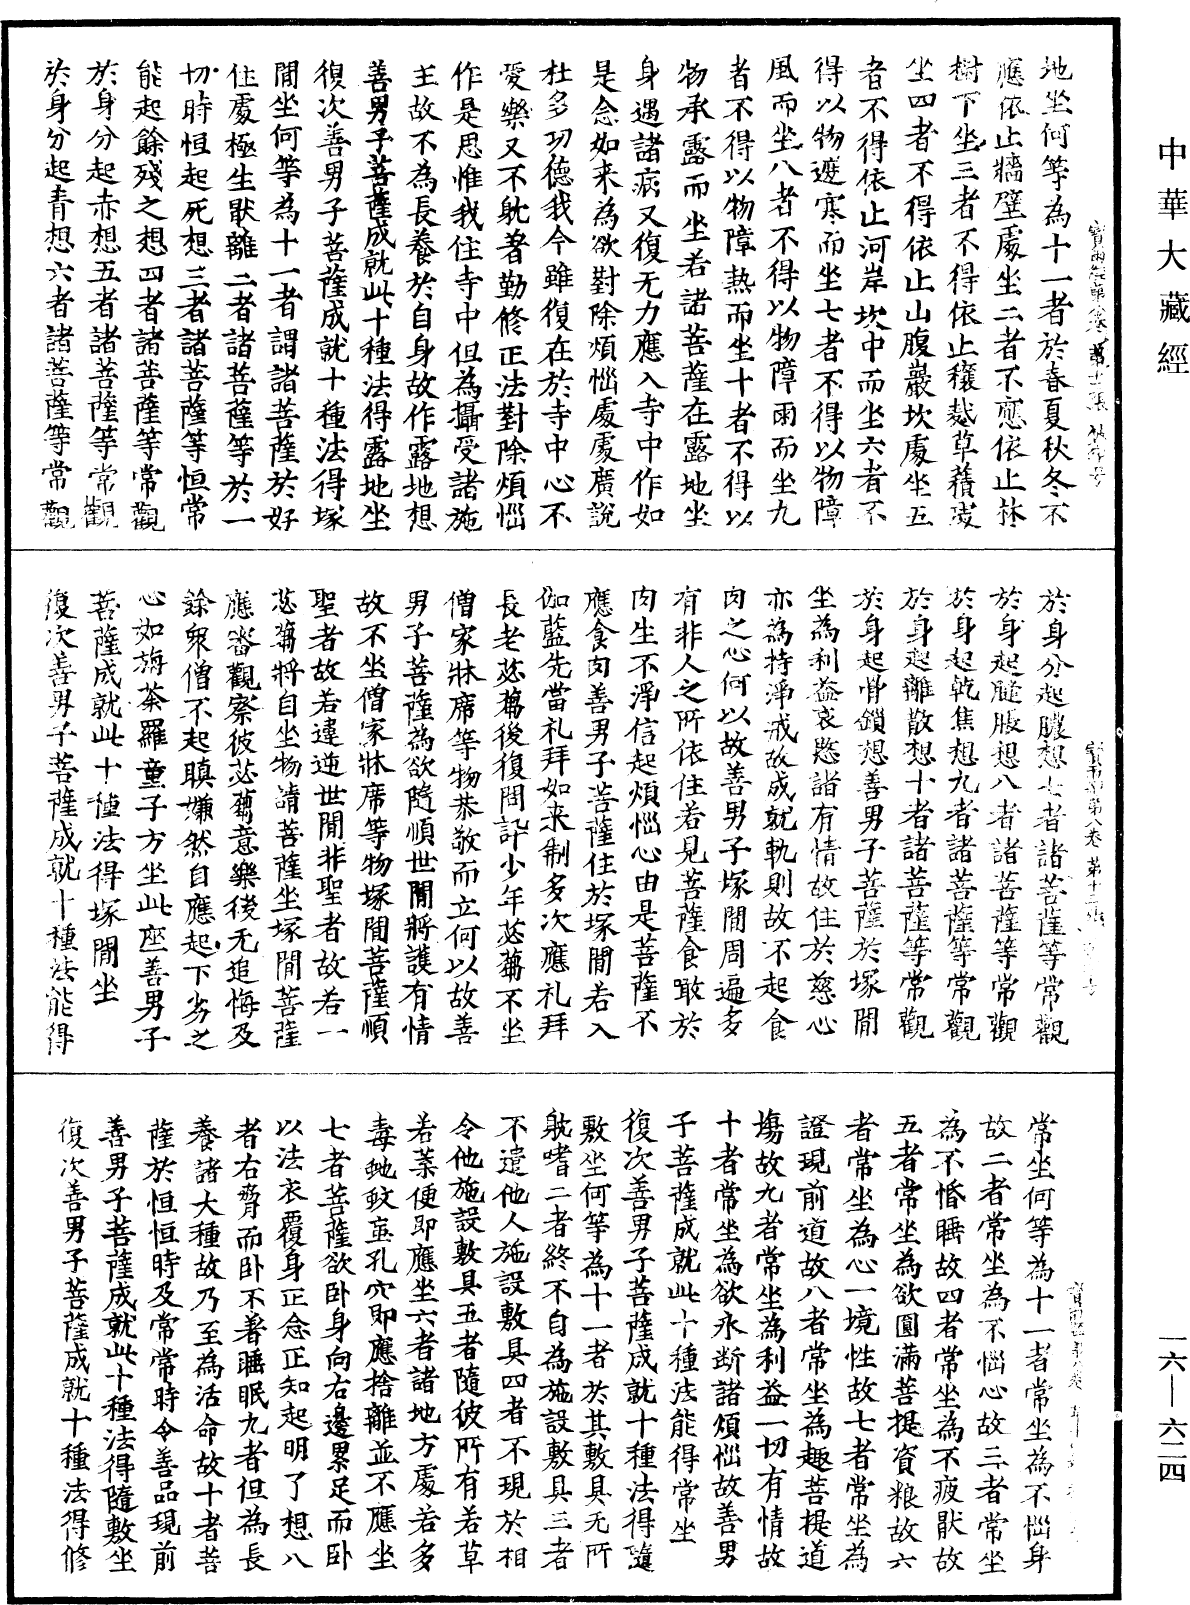 中華大藏經
地坐何等為十一者於春夏秋冬不
應依止牆壁處坐二者不應依止林
樹下坐三者不得依止穰𦼮草積處
坐四者不得依止山腹巖坎處坐五
者不得依止河岸坎中而坐六者不
得以物遮寒而坐七者不得以物障
風而坐八者不得以物障雨而坐九
者不得以物障熱而坐十者不得以
物承露而坐若諸菩薩在露地坐
身遇諸病又復无力應入寺中作如
是念如来為欲對除煩惱處處廣說
杜多功德我今雖復在於寺中心不
愛樂又不躭著勤修正法對除煩惱
作是思惟我住寺中但為攝受諸施
主故不為長養於自身故作露地想
善男子菩薩成就此十種法得露地坐
復次善男子菩薩成就十種法得塚
間坐何等為十一者謂諸菩薩於好
住處極生猒離二者諸菩薩等於一
切時恒起死想三者諸菩薩等恒常
能起餘殘之想四者諸菩薩等常觀
於身分起赤想五者諸菩薩等常觀
於身分起青想六者諸菩薩等常觀
於身分起膿想七者諸菩薩等常觀
於身起膖脹想八者諸菩薩等常觀
於身起乾焦想九者諸菩薩等常觀
於身起離散想十者諸菩薩等常觀
於身起骨鎖想善男子菩薩於塚間
坐為利益哀愍諸有情故住於慈心
亦為持淨戒故成就軌則故不起食
肉之心何以故善男子塚間周遍多
有非人之所依住若見菩薩食噉於
肉生不淨信起煩惱心由是菩薩不
應食肉善男子菩薩住於塚間若入
伽藍先當礼拜如来制多次應礼拜
長老苾蒭後復問訊少年苾蒭不坐
僧家牀席等物恭敬而立何以故善
男子菩薩為欲隨順世間將護有情
故不坐僧家牀席等物塚間菩薩順
聖者故若違逆世間非聖者故若一
苾蒭將自坐物請菩薩坐塚間菩薩
應審觀察彼苾蒭意樂後无追悔及
餘衆僧不起瞋嫌然自應起下劣之
心如旃荼羅童子方坐此座善男子
菩薩成就此十種法得塚間坐
復次善男子菩薩成就十種法能得
常坐何等為十一者常坐為不惱身
故二者常坐為不惱心故三者常坐
為不惛睡故四者常坐為不疲猒故
五者常坐為欲圓滿菩提資粮故六
者常坐為心一境性故七者常坐為
證現前道故八者常坐為趣菩提道
場故九者常坐為利益一切有情故
十者常坐為欲永斷諸煩惱故善男
子菩薩成就此十種法能得常坐
復次善男子菩薩成就十種法得隨
敷坐何等為十一者於其敷具无所
躭嗜二者終不自為施設敷具三者
不遣他人施設敷具四者不現於相
令他施設敷具五者隨彼所有若草
若葉便即應坐六者諸地方處若多
毒虵蚊䖟孔穴即應捨離並不應坐
七者菩薩欲卧身向右邊累足而卧
以法衣覆身正念正知起明了想八
者右脅而卧不著睡眠九者但為長
養諸大種故乃至為活命故十者菩
薩於恒恒時及常常時令善品現前
善男子菩薩成就此十種法得隨敷坐
復次善男子菩薩成就十種法得修
一六—六二四